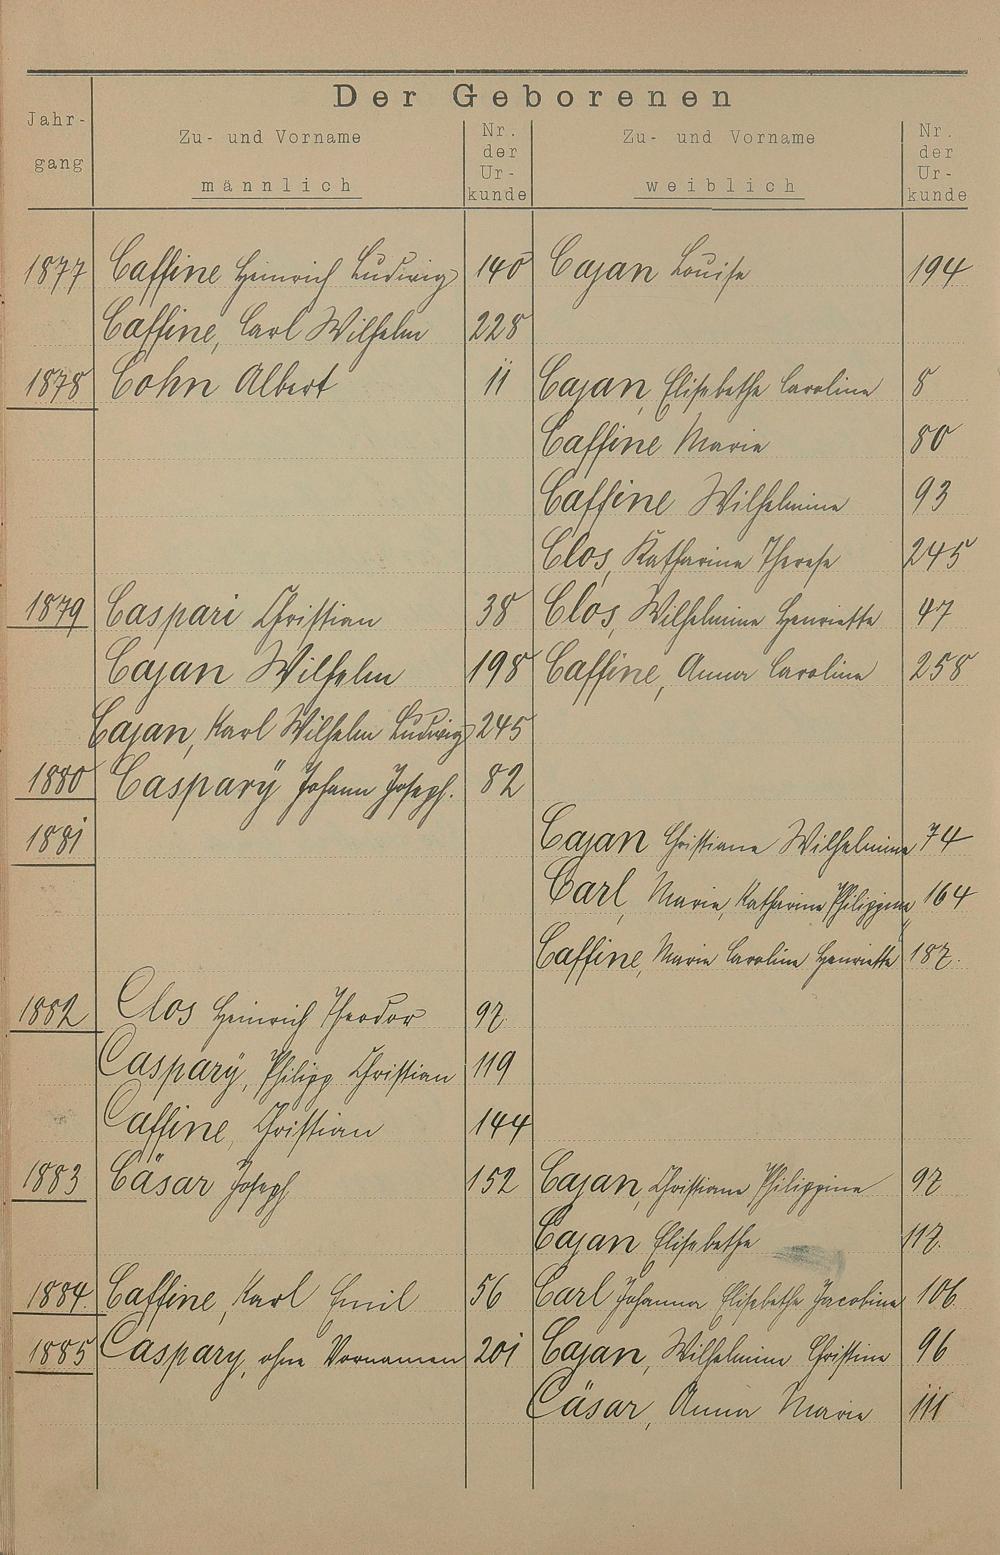 Der Geborenen
Jahr-
gang
Zu- und Vorname
männlich
Nr.
der
Ur-
kunde
Zu- und Vorname
weiblich
Nr.
der
Ur-
kunde
1877 Caffine Heinrich Ludwig 140 Cajan Louise 194
Caffine, Carl Wilhelm 228
1878 Cohn Albert 11 Cajan, Elisabethe Caroline 8
Caffine Marie 80
Caffine Wilhelmine 93
Clos, Katharine Therese 245
1879 Caspari Christian 38 Clos, Wilhelmine Henriette 47
Cajan Wilhelm 198 Caffine, Anna Caroline 258
Cajan, Karl Wilhelm Ludwig 245
1880 Caspary Johann Joseph. 82
1881 Cajan Christiane Wilhelmine 74
Carl, Marie, Katharine Philippine 164
Caffine, Marie Caroline Henriette 187.
1882 Clos Heinrich Theodor 97
Caspary, Philipp Christian 119
Caffine, Christian 144
1883 Cäsar Joseph 152 Cajan, Christiane Philippine 97
Cajan Elisabethe 117.
1884. Caffine, Karl Emil 56 Carl Johanna Elisabethe Jacobine 106
1885 Caspary, ohne Vornamen 201 Cajan, Wilhelmine Christine 96
Cäsar, Anna Marie 111